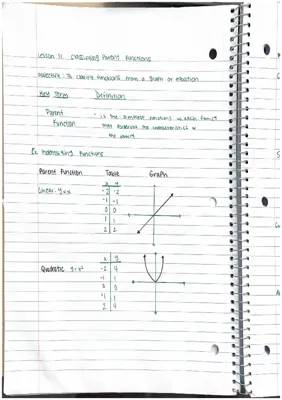 Lesson 1: Classifying Parent Functions
Objective: To classify functions from a graph or equation
Key Term Definition
Parent Function - is the simplest functions
that the characteristics of
the family
Ex: Identifying Functions
Parent Function Table Graph
Linear: y=x
x y
-2 -2
-1 -1
0 0
1 1
2 2
Quadratic y=x²
x y
-2 4
-1 1
0 0
1 1
2 4